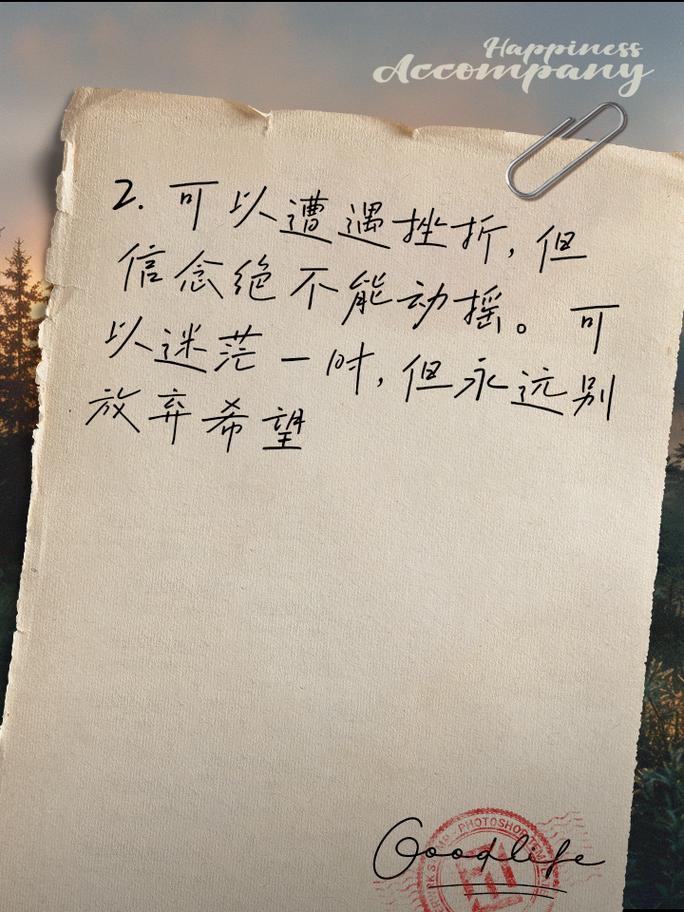 Happiness
Accompany
2. 可以遭遇挫折, 但
信念绝不能动摇。可
以迷茫一时, 但永远别
放弃希望
PHOTOSHOP
Goodlife